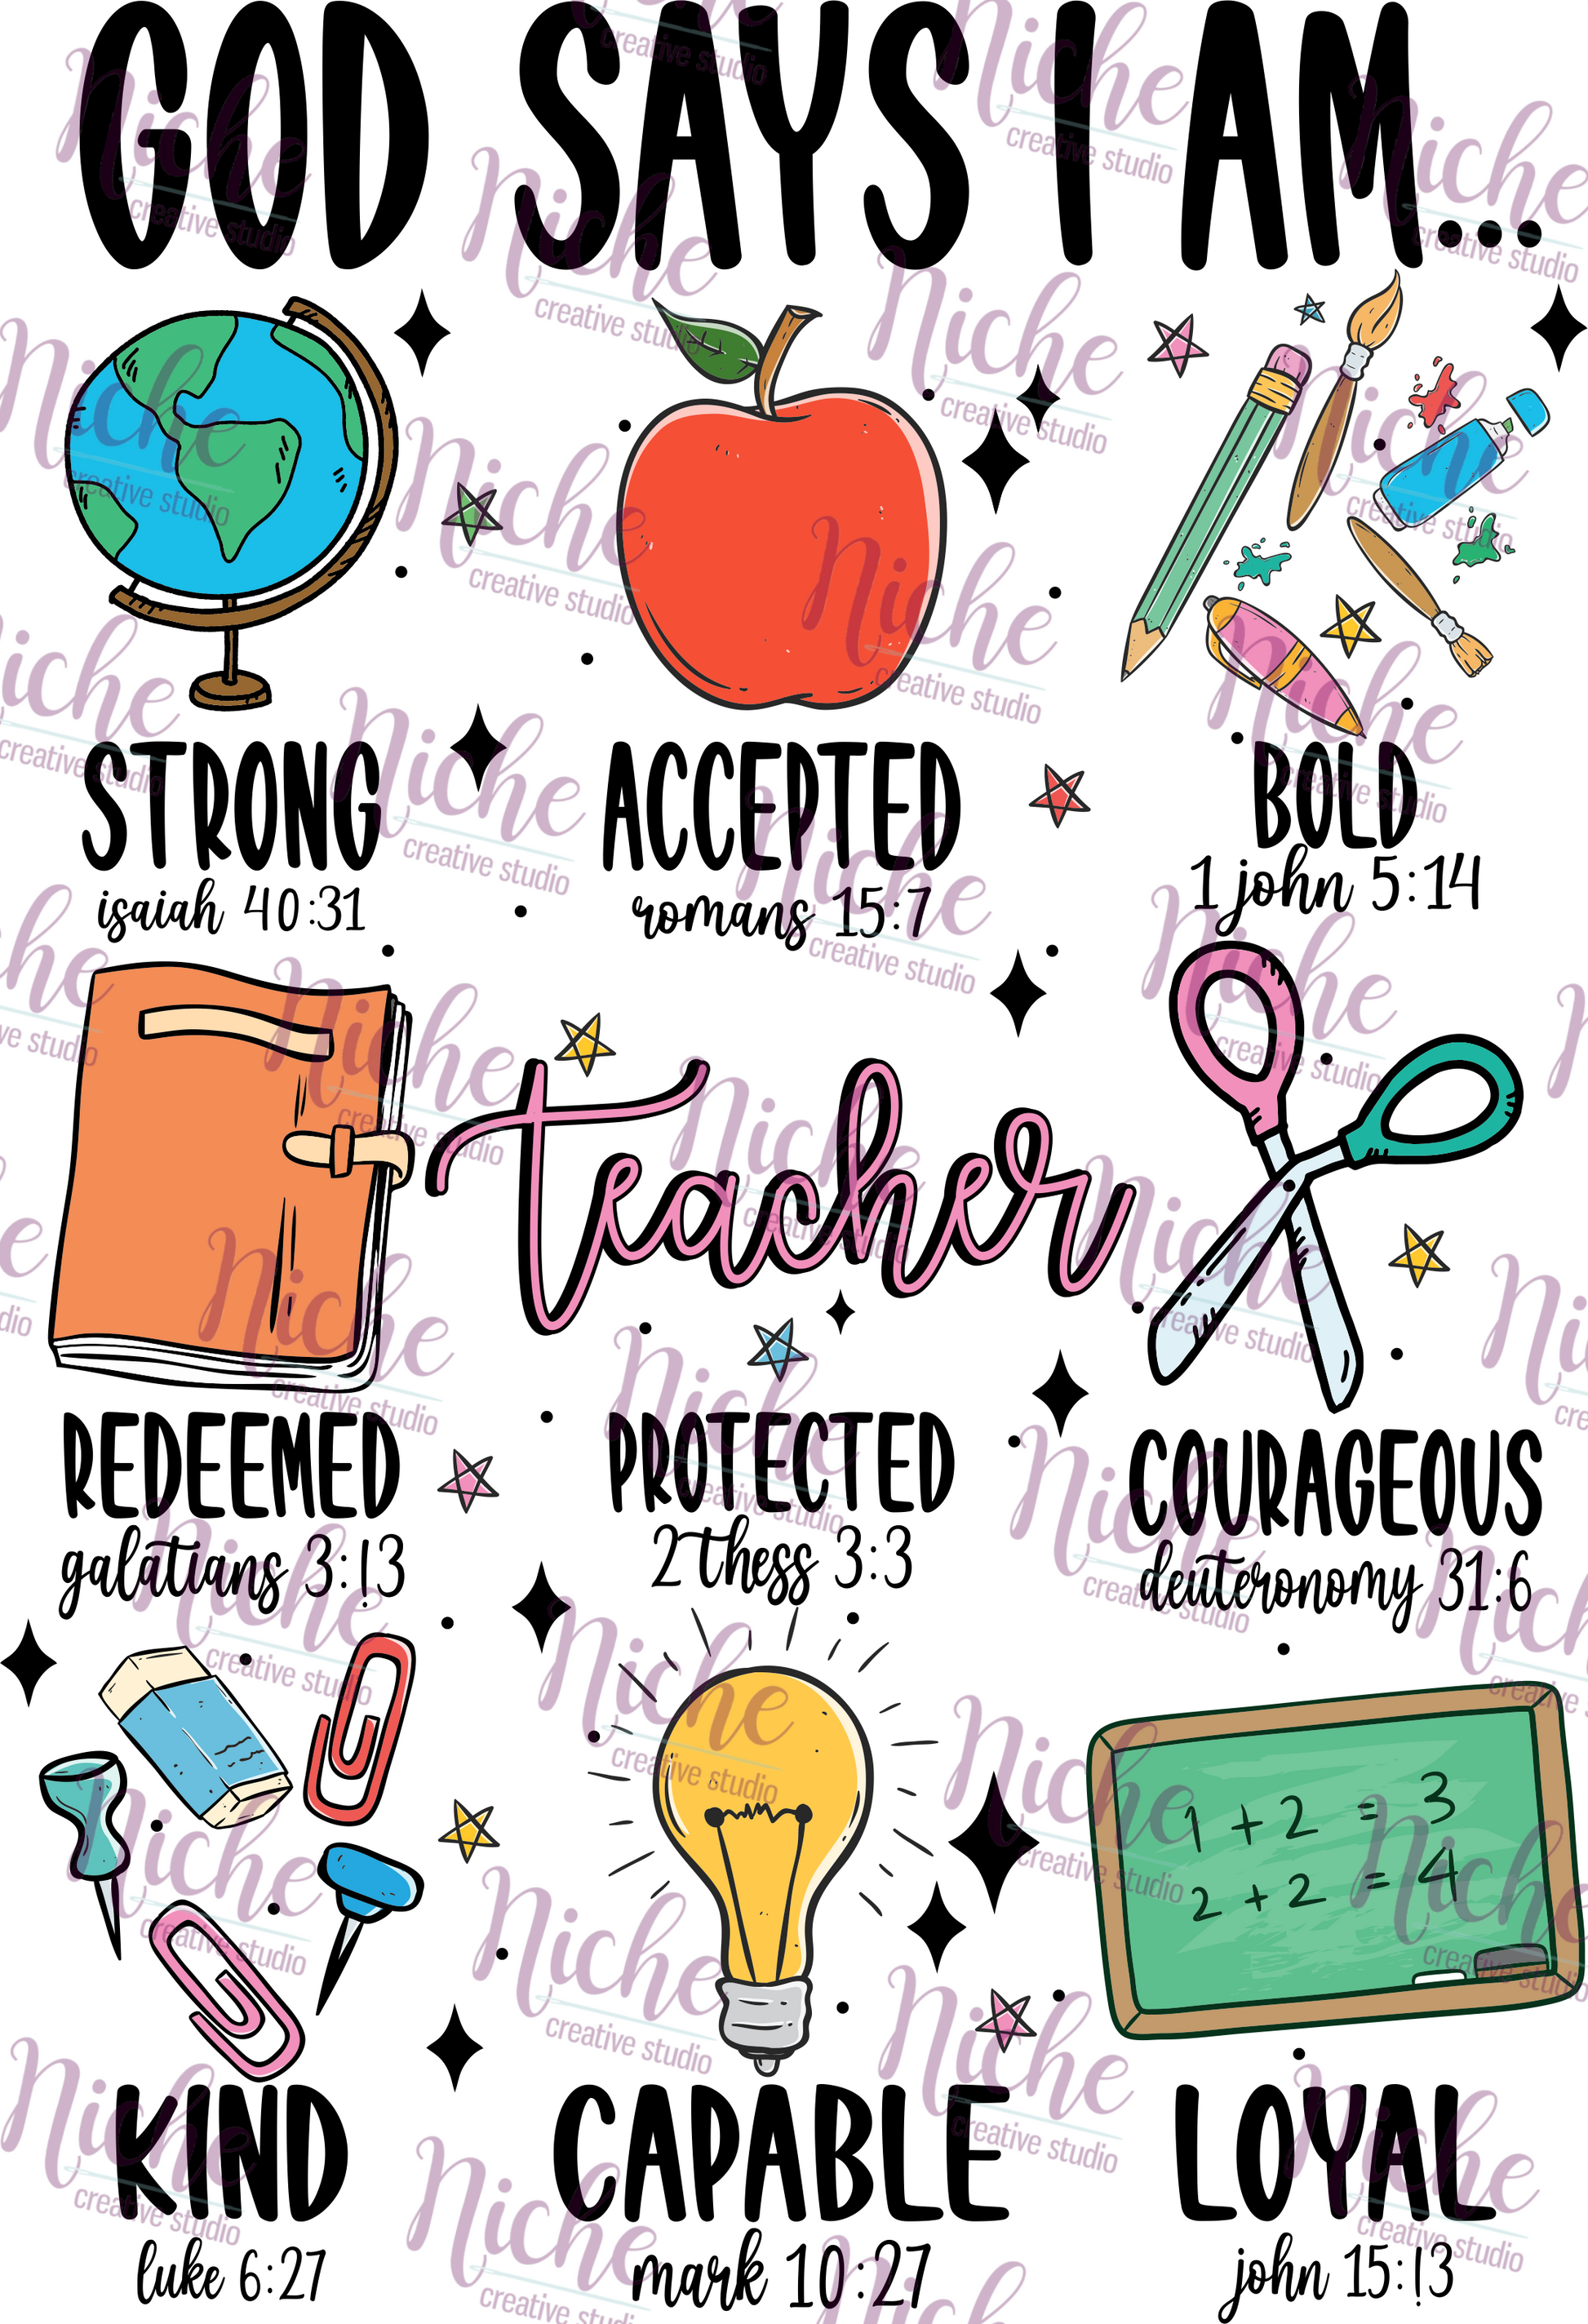 GOD SAYS I AM...
STRONG
isaiah 40:31
ACCEPTED
romans 15:7
BOLD
1 john 5:14
teacher
REDEEMED
galatians 3:!3
PROTECTED
2 thess 3:3
COURAGEOUS
deuteronomy 31:6
1 + 2 = 3
2 + 2 = 4
KIND
luke 6:27
CAPABLE
mark 10:27
LOYAL
john 15:!3
Niche
creative studio